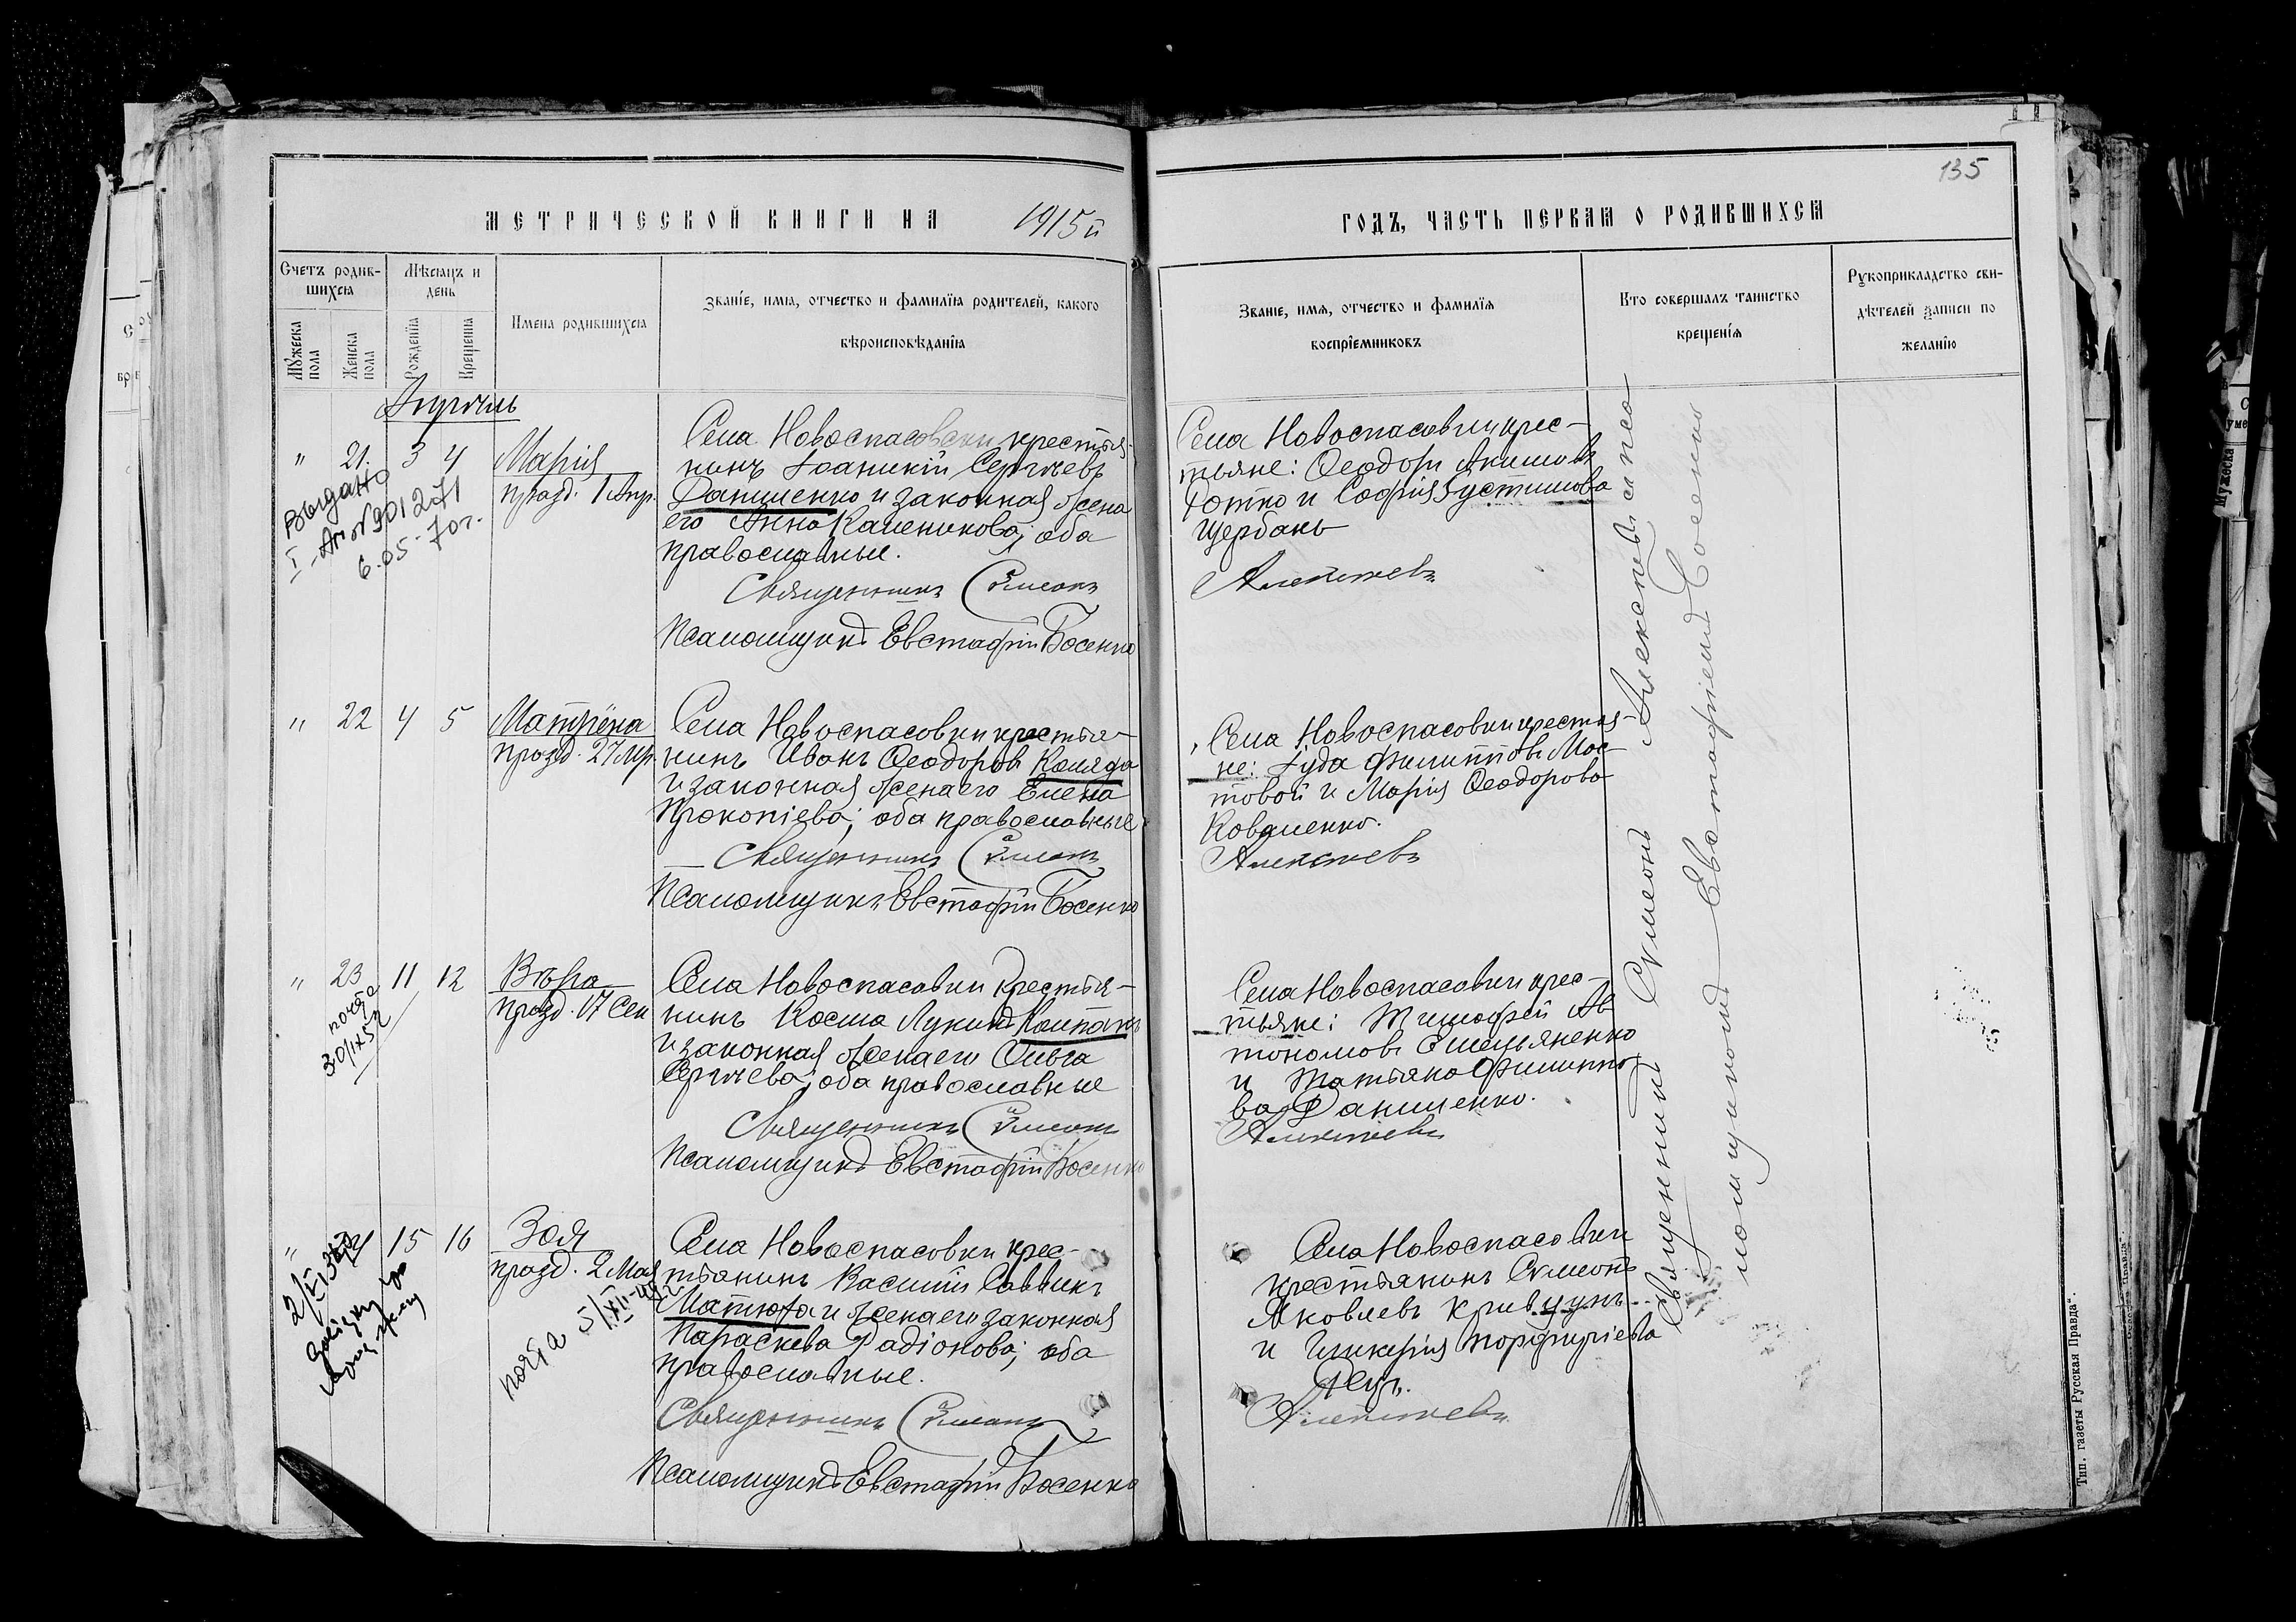 135
МЕТРИЧЕСКОЙ КНИГИ НА 1915й
ГОДЪ, ЧАСТЬ ПЕРВАЯ О РОДИВШИХСЯ
Счетъ родив-
шихся
Мѣсяцъ и
день
Мужеска пола
Женска пола
Рожденїя
Крещенїя
Имена родившихся
Званїе, имя, отчество и фамилїя родителей, какого
вѣроисповѣданїя
Званїе, имя, отчество и фамилїя
воспрїемниковъ
Кто совершалъ таинство
крещенїя
Рукоприкладство сви-
дѣтелей записи по
желанїю
Апрѣль
" 21. 3 4
Марія
празд. 1 Апр.
Выдано
6.05-70г.
Села Новоспасовки крестья-
нинъ Іоаникій Сергѣевъ
Данишенко и законная жена
его Анна Каленикова; оба
православные.
Священникъ Сѵмеонъ
Псаломщикъ Евстафій Босенко
Села Новоспасовки крес-
тьяне: Ѳеодоръ Акимовъ
Ютко и Софія Іустинова
Щербань
Алексѣевъ
" 22 4 5
Матрёна
празд. 27 Мр.
Села Новоспасовки крестья-
нинъ Иванъ Ѳеодоровъ Коляда
и законная жена его Елена
Прокопіева; оба православные
Священникъ Сѵмеонъ
Псаломщикъ Евстафій Босенко
Села Новоспасовки крестья-
не: Іуда Филипповъ Мос-
товой и Марія Ѳеодорова
Коваленко.
Алексѣевъ
" 23 11 12
Вѣра
празд. 17 Сен
Села Новоспасовки крестья-
нинъ Косма Лукинъ Компанъ
и законная жена его Ольга
Сергѣева; оба православные
Священникъ Сѵмеонъ
Псаломщикъ Евстафій Босенко
Села Новоспасовки крес-
тьяне: Тимофей Ав-
тономовъ Емельяненко
и Татьяна Филиппо-
ва Данишенко.
Алексѣевъ
" 15 16
Зоя
празд. 2 Мая
Села Новоспасовки крес-
тьянинъ Василій Саввинъ
Матюха и жена его законная
Параскева Радіонова; оба
православные.
Священникъ Сѵмеонъ
Псаломщикъ Евстафій Босенко
Села Новоспасовки
крестьянинъ Сѵмеонъ
Яковлевъ Кривцунъ
и Гликерія Порфиріева
Алексѣевъ
Священникъ Сѵмеонъ Алексѣевъ съ пса-
ломщикомъ Евстафіемъ Босенко
Тип. газеты „Русская Правда".